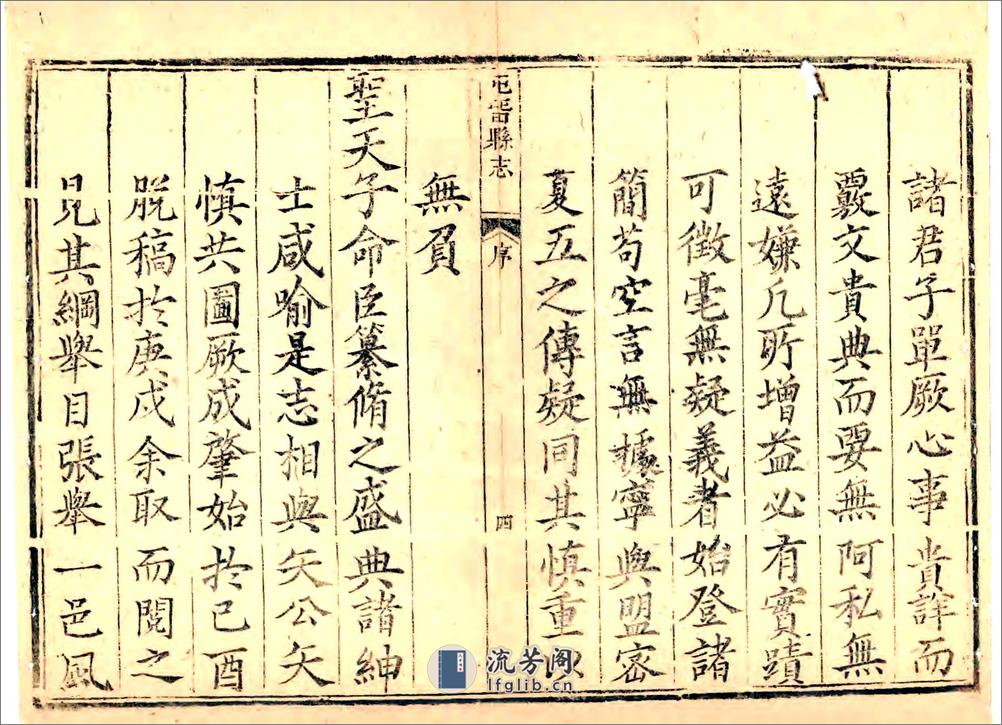 諸君子單厥心事貴詳而
覈文貴典而要無阿私無
遠嫌凡所增益必有實蹟
可徵毫無疑義者始登諸
簡苟空言無據寧與盟密
夏五之傳疑同其慎重以
無負
屯留縣志
序
四
聖天子命臣纂脩之盛典諸紳
士咸喻是志相與矢公矢
慎共圖厥成肇始於己酉
脫稿於庚戌余取而閱之
見其綱舉目張舉一邑風
流芳阁
lfglib.cn